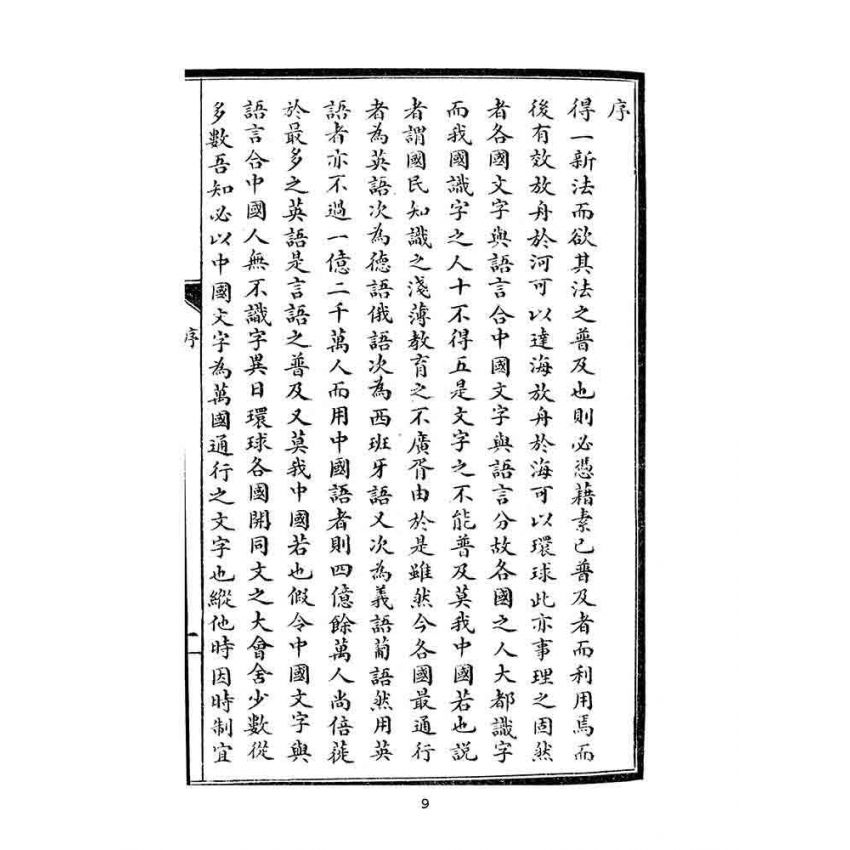 序
得一新法而欲其法之普及也則必憑藉素已普及者而利用焉而
後有效放舟於河可以達海放舟於海可以環球此亦事理之固然
者各國文字與語言合中國文字與語言分故各國之人大都識字
而我國識字之人十不得五是文字之不能普及莫我中國若也説
者謂國民知識之淺薄教育之不廣胥由於是雖然今各國最通行
者為英語次為德語俄語次為西班牙語又次為義語葡語然用英
語者亦不過一億二千萬人而用中國語者則四億餘萬人尚倍蓰
於最多之英語是言語之普及又莫我中國若也假令中國文字與
語言合中國人無不識字異日環球各國開同文之大會舍少數從
多數吾知必以中國文字為萬國通行之文字也縱他時因時制宜
序
一
9